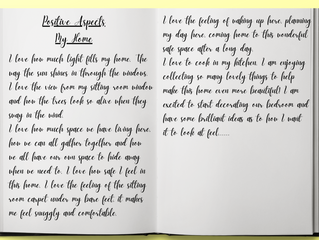 Positive Aspects
My Home
I love how much light fills my home. The
way the sun shines in through the windows.
I love the view from my sitting room window
and how the trees look so alive when they
sway in the wind.
I love how much space we have living here,
how we can all gather together and how
we all have our own space to hide away
when we need to. I love how safe I feel in
this home. I love the feeling of the sitting
room carpet under my bare feet, it makes
me feel snuggly and comfortable.
I love the feeling of waking up here, planning
my day here, coming home to this wonderful
safe space after a long day.
I love to cook in my kitchen. I am enjoying
collecting so many lovely things to help
make this home even more beautiful! I am
excited to start decorating our bedroom and
have some brilliant ideas as to how I want
it to look at feel......